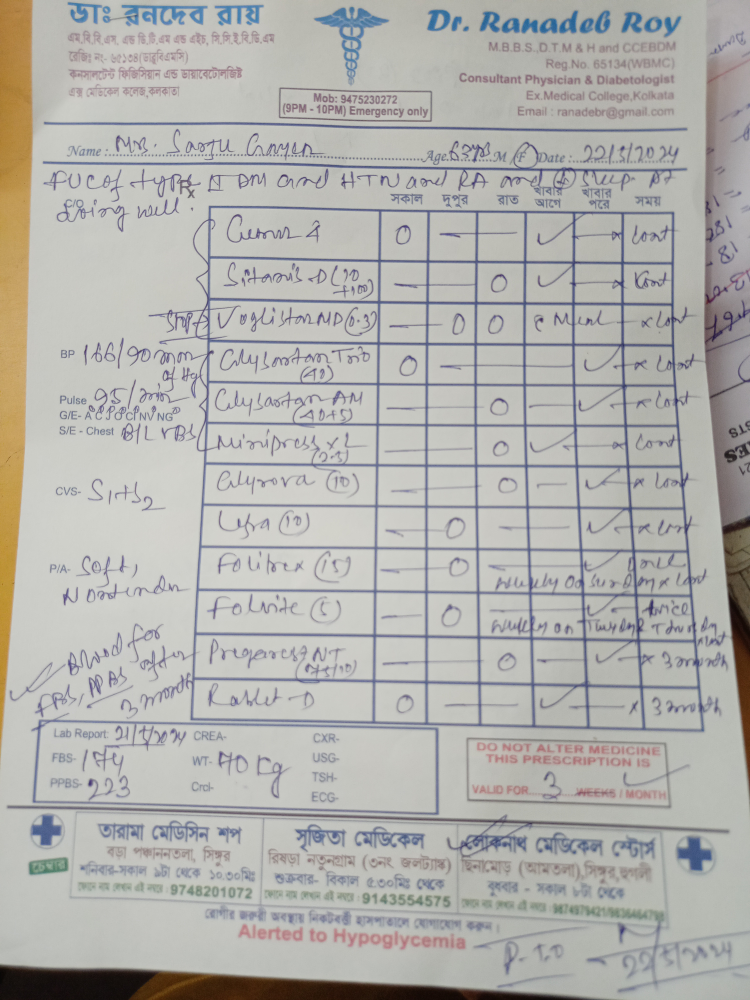 ডাঃ রনদেব রায়
এম.বি.বি.এস, এন্ড ডি.টি.এম এন্ড এইচ, সি.সি.ই.বি.ডি.এম
কনসালটেন্ট ফিজিসিয়ান এন্ড ডায়াবেটোলজিষ্ট
এক্স মেডিকেল কলেজ, কলকাতা
Mob: 9475230272
(9PM - 10PM) Emergency only
Dr. Ranadeb Roy
M.B.B.S.,D.T.M & H and CCEBDM
Reg.No. 65134(WBMC)
Consultant Physician & Diabetologist
Ex.Medical College,Kolkata
Email : ranadebr@gmail.com
Name : Mrs. Age M F Date : 22/5/2024
FUC of type II DM and HTN and RA and sleep
C/O doing well.
Rx
সকাল দুপুর রাত খাবার আগে খাবার পরে সময়
0 — — ✓ x cont
Sitaris-D (10 +100) — 0 ✓ x cont
Stop → Voglistar MD (0.3) — 0 0 c Meal — x cont
BP 166/90 mm of Hg
Gilysartan Trio (40) 0 — ✓ x cont
Pulse 95/min
Gilysartan AM (40+5) — 0 — ✓ x cont
G/E-
S/E - Chest B/L VBS
Minipress XL (2.5) 0 ✓ x cont
Glyrova (10) — 0 — ✓ x cont
CVS- S1+S2
Lefra (10) — 0 — ✓ x cont
P/A- Soft, Nontender
Folitrex (15) — 0 — ✓ once weekly on sunday x cont
Folvite (5) — 0 — ✓ twice weekly on Tuesday & Thursday x cont
Pregaress NT (75/10) — 0 — ✓ x 3 month
Rablet-D 0 — ✓ x 3 month
✓ Blood for FBS, PPBS after 3 month
Lab Report: 21/5/2024 CREA- CXR-
FBS- 174 WT- 70 kg USG-
PPBS- 223 Crcl- TSH-
ECG-
DO NOT ALTER MEDICINE
THIS PRESCRIPTION IS
VALID FOR 3 WEEKS / MONTH
চেম্বার
তারামা মেডিসিন শপ
বড়া পঞ্চাননতলা, সিঙ্গুর
শনিবার-সকাল ৯টা থেকে ১০.৩০মিঃ
ফোনে নাম লেখান এই নম্বরে : 9748201072
সৃজিতা মেডিকেল
রিষড়া নতুনগ্রাম (৩নং জলট্যাঙ্ক)
শুক্রবার- বিকাল ৫:৩০মিঃ থেকে
ফোনে নাম লেখান এই নম্বরে : 9143554575
লোকনাথ মেডিকেল স্টোর্স
ছিনামোড় (আমতলা), সিঙ্গুর, হুগলী
বুধবার - সকাল ৮টা থেকে
রোগীর জরুরী অবস্থায় নিকটবর্তী হাসপাতালে যোগাযোগ করুন।
Alerted to Hypoglycemia
P.T.O
22/5/2024